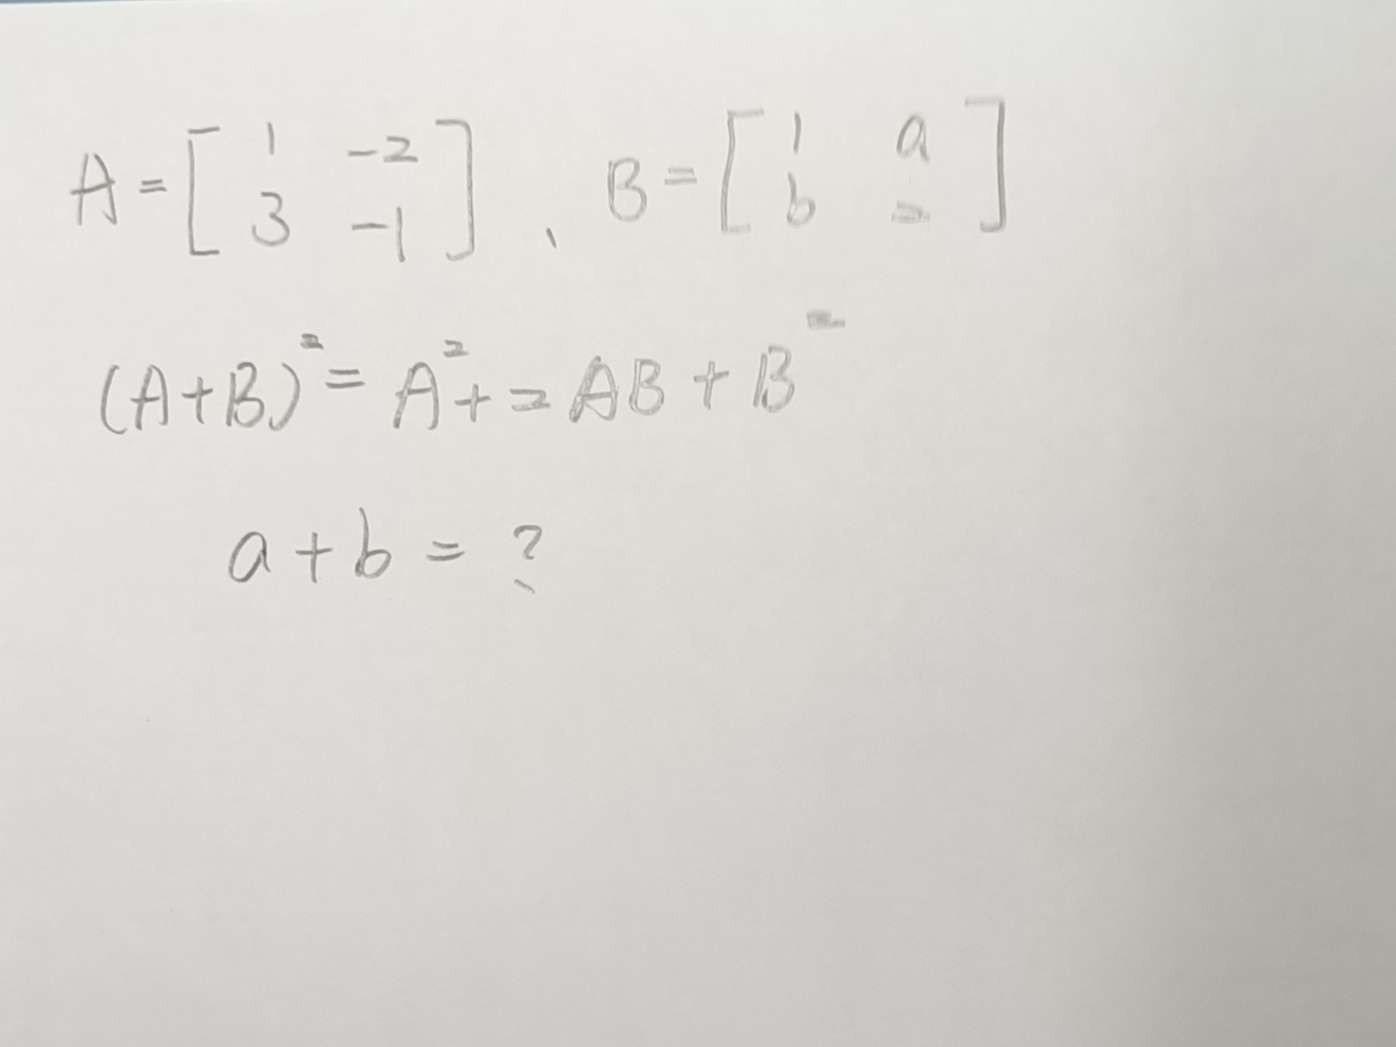 A = [ 1 -2 ; 3 -1 ] 、 B = [ 1 a ; b 2 ]
(A+B)² = A² + 2AB + B²
a + b = ?